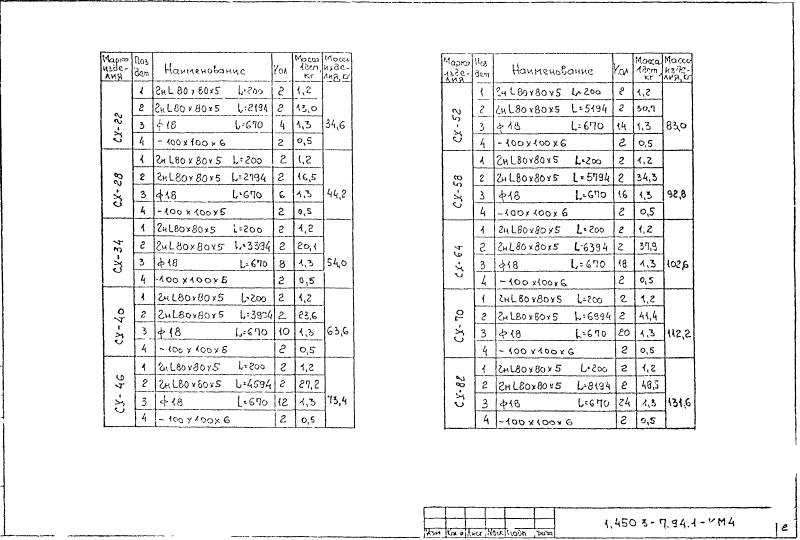 Марка изде- лия Поз дет Наименование Кол Масса 1 дет, кг Масса изде- лия, кг
СХ-22
1 2нL80х80х5 L=200 2 1,2
2 2нL80х80х5 L=2194 2 13,0
3 ф18 L=670 4 1,3 34,6
4 -100х100х6 2 0,5
СХ-28
1 2нL80х80х5 L=200 2 1,2
2 2нL80х80х5 L=2794 2 16,5
3 ф18 L=670 6 1,3 44,2
4 -100х100х5 2 0,5
СХ-34
1 2нL80х80х5 L=200 2 1,2
2 2нL80х80х5 L=3394 2 20,1
3 ф18 L=670 8 1,3 54,0
4 -100х100х5 2 0,5
СХ-40
1 2нL80х80х5 L=200 2 1,2
2 2нL80х80х5 L=3994 2 23,6
3 ф18 L=670 10 1,3 63,6
4 -100х100х6 2 0,5
СХ-46
1 2нL80х80х5 L=200 2 1,2
2 2нL80х80х5 L=4594 2 27,2
3 ф18 L=670 12 1,3 73,4
4 -100х100х6 2 0,5
Марка изде- лия Поз дет Наименование Кол Масса 1 дет, кг Масса изде- лия, кг
СХ-52
1 2нL80х80х5 L=200 2 1,2
2 2нL80х80х5 L=5194 2 30,7
3 ф18 L=670 14 1,3 83,0
4 -100х100х6 2 0,5
СХ-58
1 2нL80х80х5 L=200 2 1,2
2 2нL80х80х5 L=5794 2 34,3
3 ф18 L=670 16 1,3 92,8
4 -100х100х6 2 0,5
СХ-64
1 2нL80х80х5 L=200 2 1,2
2 2нL80х80х5 L=6394 2 37,9
3 ф18 L=670 18 1,3 102,6
4 -100х100х6 2 0,5
СХ-70
1 2нL80х80х5 L=200 2 1,2
2 2нL80х80х5 L=6994 2 41,4
3 ф18 L=670 20 1,3 112,2
4 -100х100х6 2 0,5
СХ-82
1 2нL80х80х5 L=200 2 1,2
2 2нL80х80х5 L=8194 2 48,5
3 ф18 L=670 24 1,3 131,6
4 -100х100х6 2 0,5
1.450 3-7.94.1-КМ4
Изм Кол Лист №док Подп Дата
2